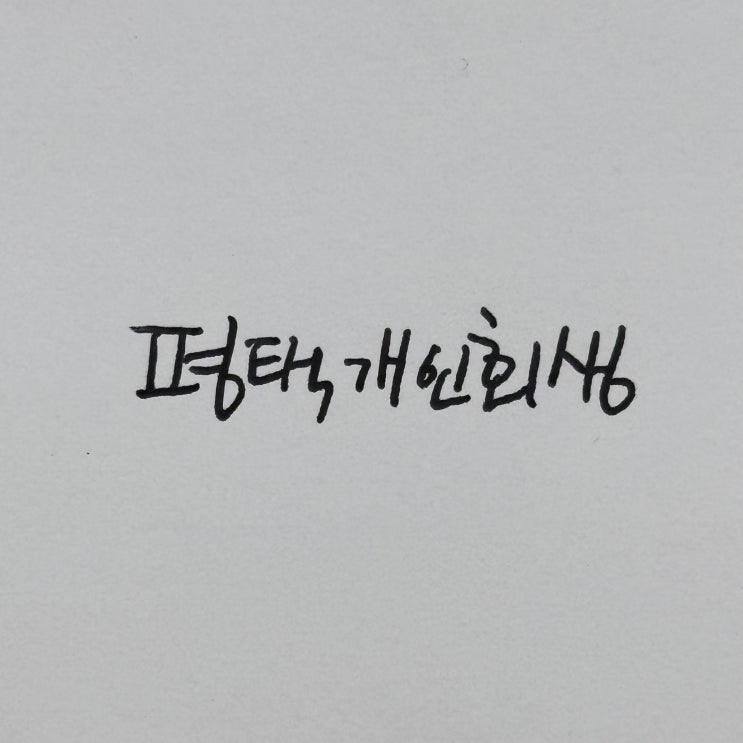 평택개인회생